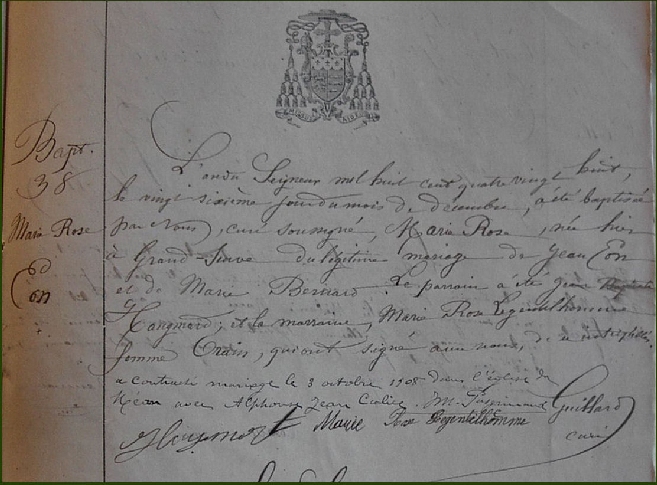 Bapt.
38
Marie Rose
Eon
L'an du Seigneur mil huit cent quatre vingt huit,
le vingt sixième jour du mois de décembre, a été baptisée
par Nous, curé soussigné, Marie Rose, née hier
à Grand- du légitime mariage de Jean Eon
et de Marie Bernard. Le parrain a été Jean
et la marraine, Marie Rose Legentelhomme
femme Orain, qui ont signé avec nous, de
a contracté mariage le 3 octobre 1908 dans l'église de
avec Alphonse Jean
Marie Rose Legentelhomme
Guillard
curé